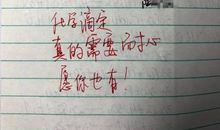 化学滴定
真的需要耐心
愿你也有!